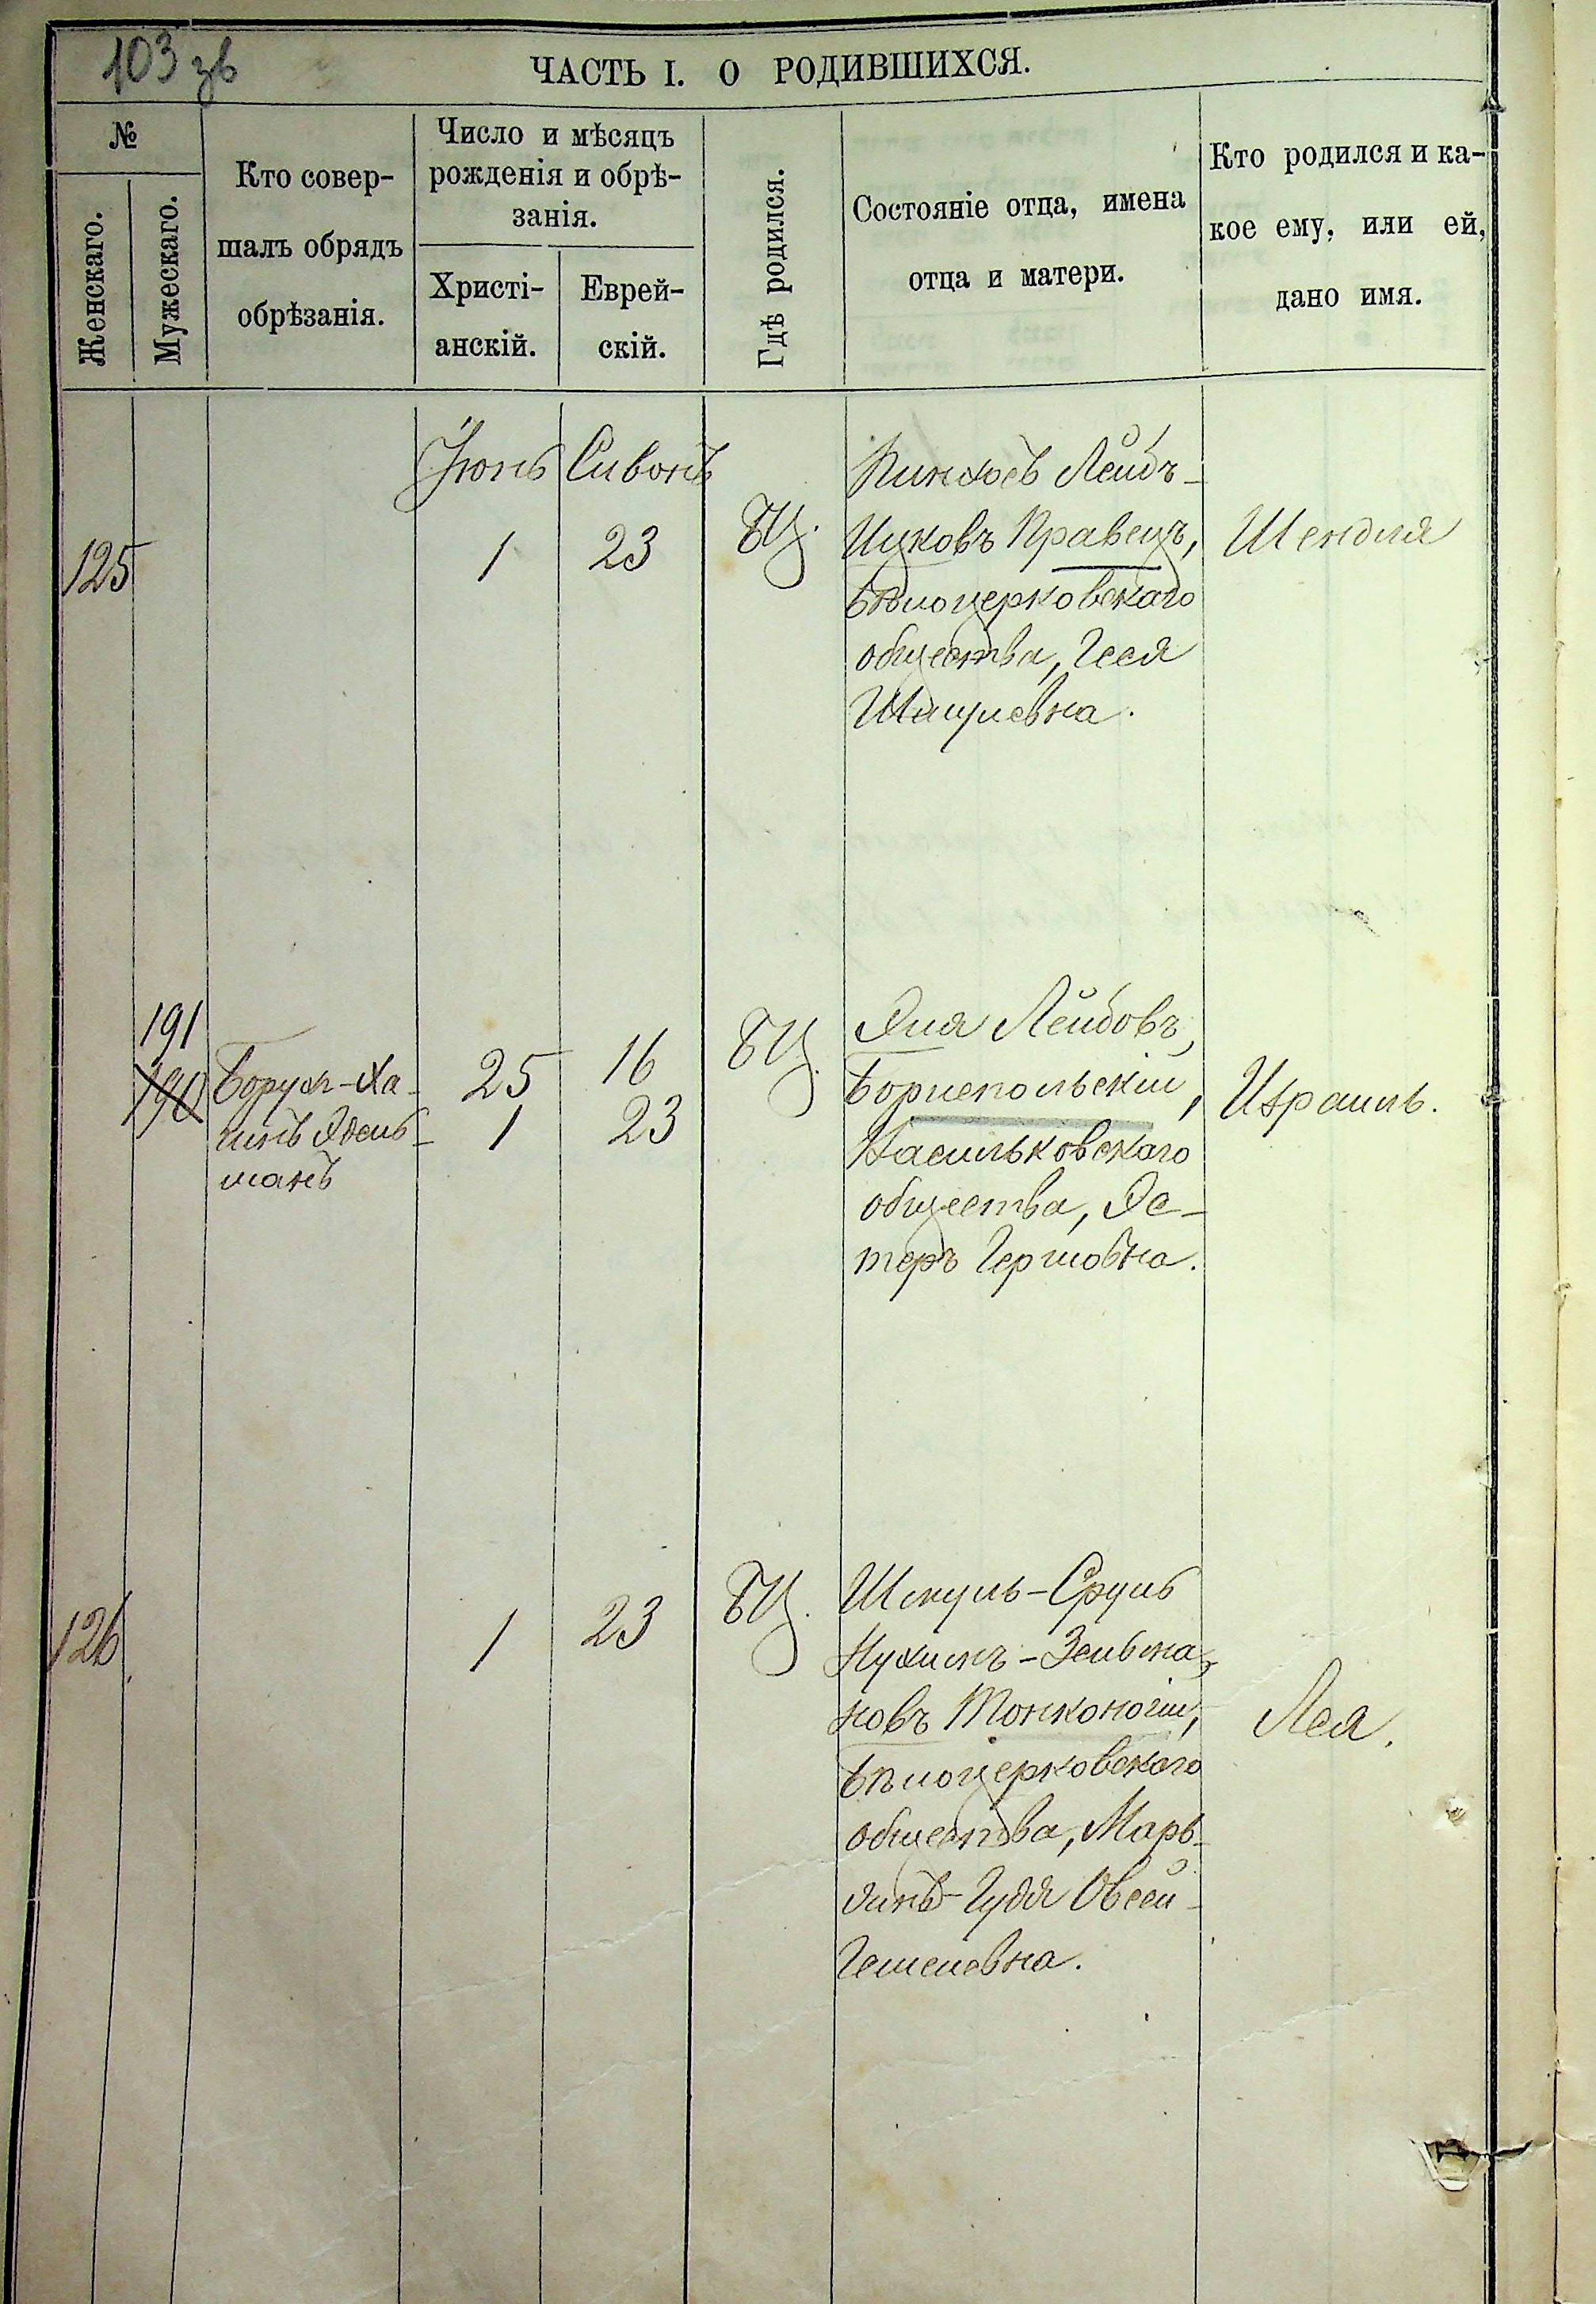 103 зв
ЧАСТЬ I. О РОДИВШИХСЯ.
№
Женскаго.
Мужескаго.
Кто совер-
шалъ обрядъ
обрѣзанія.
Число и мѣсяцъ
рожденія и обрѣ-
занія.
Христі-
анскій.
Еврей-
скій.
Гдѣ родился.
Состояніе отца, имена
отца и матери.
Кто родился и ка-
кое ему, или ей,
дано имя.
Іюнь
Сивонъ
125
1
23
БЦ.
Пинхосъ Лейбъ-
Ицковъ Кравецъ,
Бѣлоцерковскаго
общества, Гееля
Шмулевна.
Шендля
191
190
Борухъ-Ха-
имъ Эдель-
манъ
25
1
16
23
БЦ.
Эля Лейбовъ,
Бориспольскій,
Васильковскаго
общества, Эс-
теръ Гершовна.
Израиль.
126
1
23
БЦ.
Шмуль-Сруль
Нухимъ-Зельма-
новъ Тонконогій,
Бѣлоцерковскаго
общества, Марь-
Гудя Овсей-
Гешелевна.
Лея.